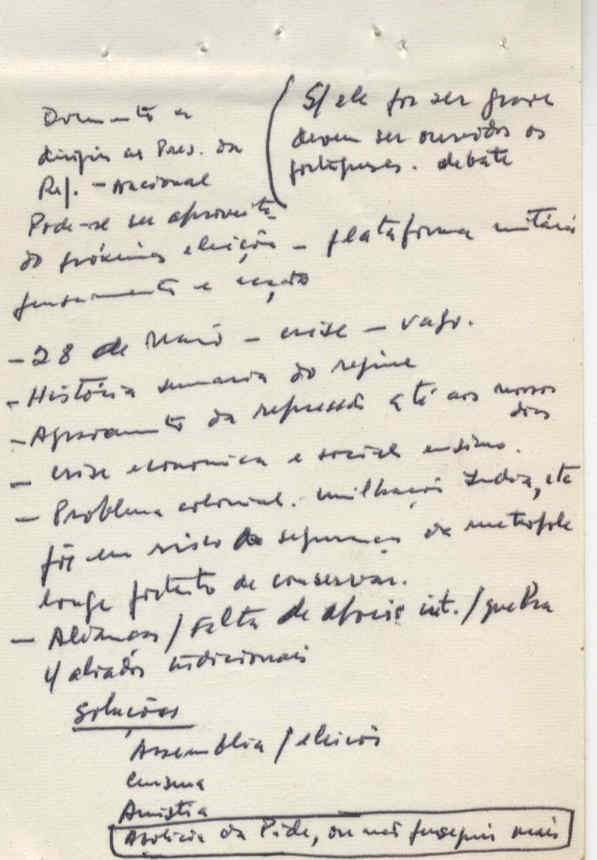 Documento a
dirigir ao Pres. da
Rep. - nacional
S/ ele for ser grave
devem ser ouvidos os
portugueses. debate
Pode-se ser aproveita
do próximas eleições - plataforma unitária
pensamento e acção
- 28 de Maio - crise - vago.
- História sumaria do regime
- Agravamento da repressão até aos nossos
dias
- crise economica e social ensino.
- Problema colonial. humilhação India, etc
em risco da segurança da metropole
longe de conservar.
- Alianças / falta de apoio int. / quebra
c/ aliados tradicionais
Soluções
Assembleia / eleições
Censura
Amistia
Abolicia da Pide, ou não mais